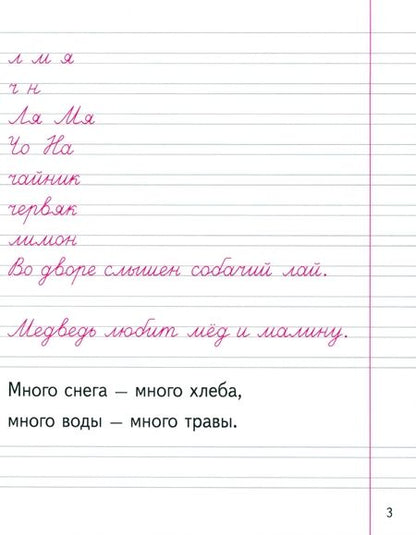 л м я
ч н
Ля Мя
Чо На
чайник
червяк
лимон
Во дворе слышен собачий лай.
Медведь любит мёд и малину.
Много снега — много хлеба,
много воды — много травы.
3